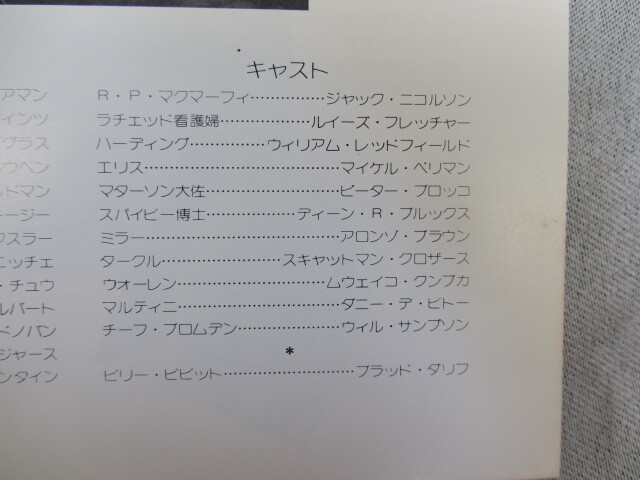 キャスト
アマン
R・P・マクマーフィ……………ジャック・ニコルソン
インツ
ラチェッド看護婦………………ルイーズ・フレッチャー
グラス
ハーディング……………ウィリアム・レッドフィールド
ウペン
エリス…………………………………マイケル・ベリマン
ルドマン
マターソン大佐………………………ピーター・ブロッコ
ージー
スパイビー博士………………ディーン・R・ブルックス
クスラー
ミラー…………………………………アロンゾ・ブラウン
ニッチェ
タークル……………………スキャットマン・クロザース
・チュウ
ウォーレン…………………………ムウェイコ・クンブカ
ルバート
マルティニ……………………………ダニー・デ・ビトー
ドノバン
チーフ・ブロムデン…………………ウィル・サンプソン
ジャース
*
ンタイン
ビリー・ビビット………………………ブラッド・ダリフ